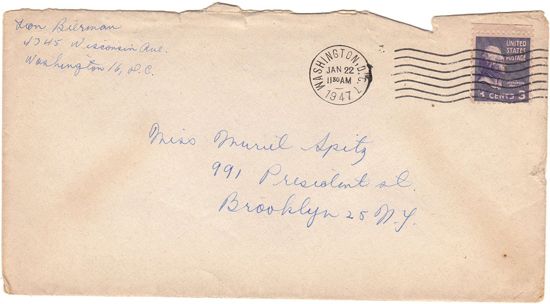 Don Bierman
4745 Wisconsin Ave.
Washington 16, D.C.
WASHINGTON, D.C.
JAN 22
11 30 AM
1947
UNITED
STATES
POSTAGE
CENTS 3
Miss Muriel Spitz
991 President st.
Brooklyn 25 N.Y.